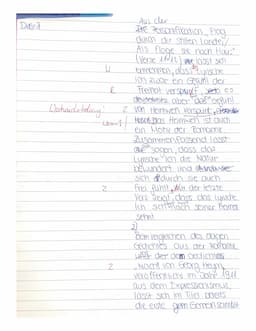 Aus der
Personifikation „Flog
durch die stillen Lande,
Als flöge sie nach Haus"
(Verse 11/12) lässt sich
entnehmen, dass Lyrische
Ich zwar ein Gefühl der
R Freiheit verspürt,
aber das Gefühl
Z von Heimweh
Heimweh ist auch
ein Motiv der Romantik
Zusammenfassend lässt
sich sagen, dass das
Lyrische Ich die Natur
bewundert und
sich durch sie auch
Z Frei fühlt, der letzte
Vers zeigt, dass das Lyrische
Ich sich nach seiner Heimat
sehnt
2)
Beim vergleichen des obigen
Gedichtes aus der Romantik
mit dem Gedicht
Z von Georg Heym,
veröffentlicht im Jahr 1911
aus dem Expressionismus,
lässt sich im Titel bereits
die erste Gemeinsamkeit